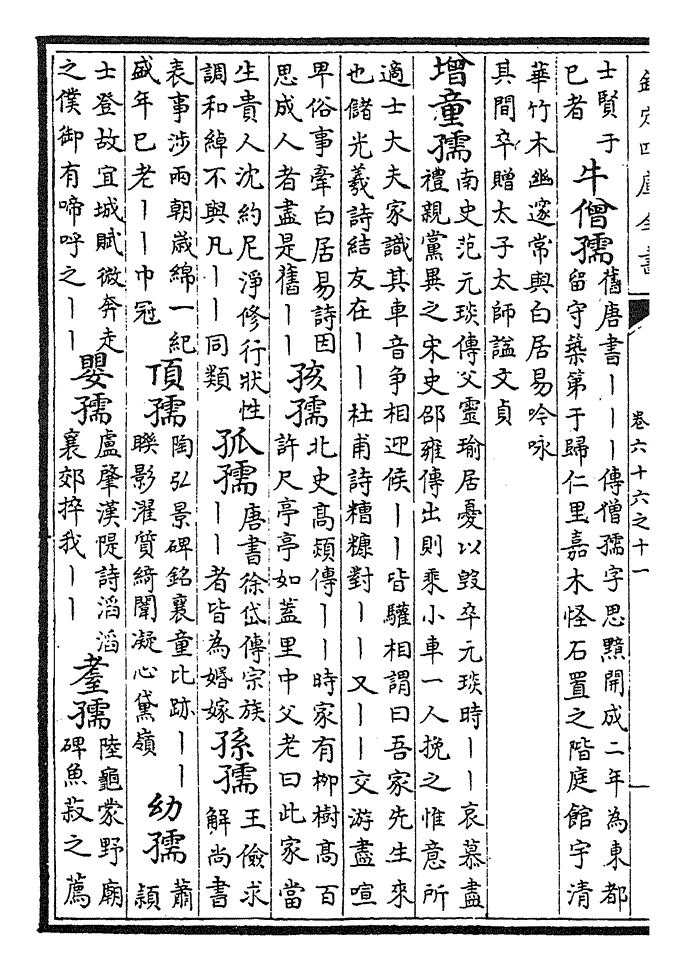 欽定四庫全書
卷六十六之十一
士賢于
已者
牛僧孺
舊唐書丨丨丨傳僧孺字思黯開成二年為東都
留守築第于歸仁里嘉木怪石置之階庭館宇清
華竹木幽邃常與白居易吟咏
其間卒贈太子太師諡文貞
增童孺
南史范元琰傳父靈瑜居憂以毀卒元琰時丨丨哀慕盡
禮親黨異之宋史邵雍傳出則乘小車一人挽之惟意所
適士大夫家識其車音争相迎候丨丨皆驩相謂曰吾家先生來
也儲光羲詩結友在丨丨杜甫詩糟糠對丨丨又丨丨交游盡喧
卑俗事牽白居易詩因
思成人者盡是舊丨丨
孩孺
北史高熲傳丨丨時家有柳樹高百
許尺亭亭如蓋里中父老曰此家當
生貴人沈約尼淨修行狀性
調和綽不與凡丨丨同類
孤孺
唐書徐岱傳宗族
丨丨者皆為婚嫁
孫孺
王儉求
解尚書
表事涉兩朝歲綿一紀
盛年已老丨丨巾冠
頂孺
陶弘景碑銘襄童比跡丨丨
聮影濯質綺聞凝心黛嶺
幼孺
蕭
潁
士登故宜城賦微奔走
之僕御有啼呼之丨丨
嬰孺
盧肇漢隄詩滔滔
襄郊捽我丨丨
耋孺
陸龜蒙野廟
碑魚菽之薦